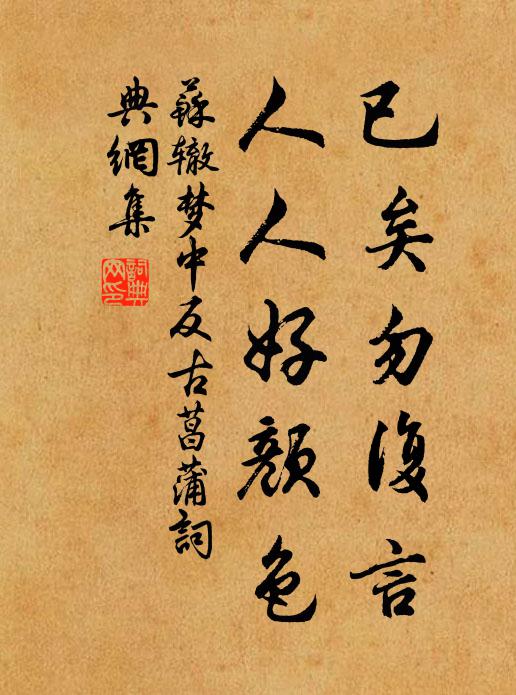 已矣勿復言
人人好顏色
蘇辙梦中反古菖蒲詞
典網集
詞典网印